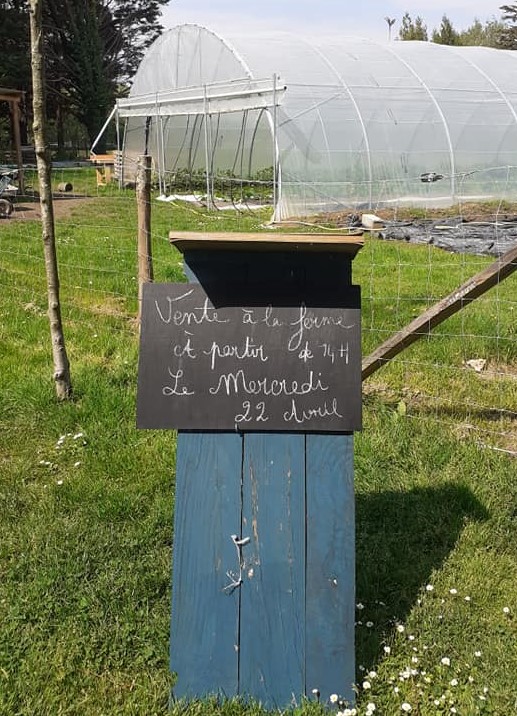 Vente à la ferme
à partir de 14H
Le Mercredi
22 Avril